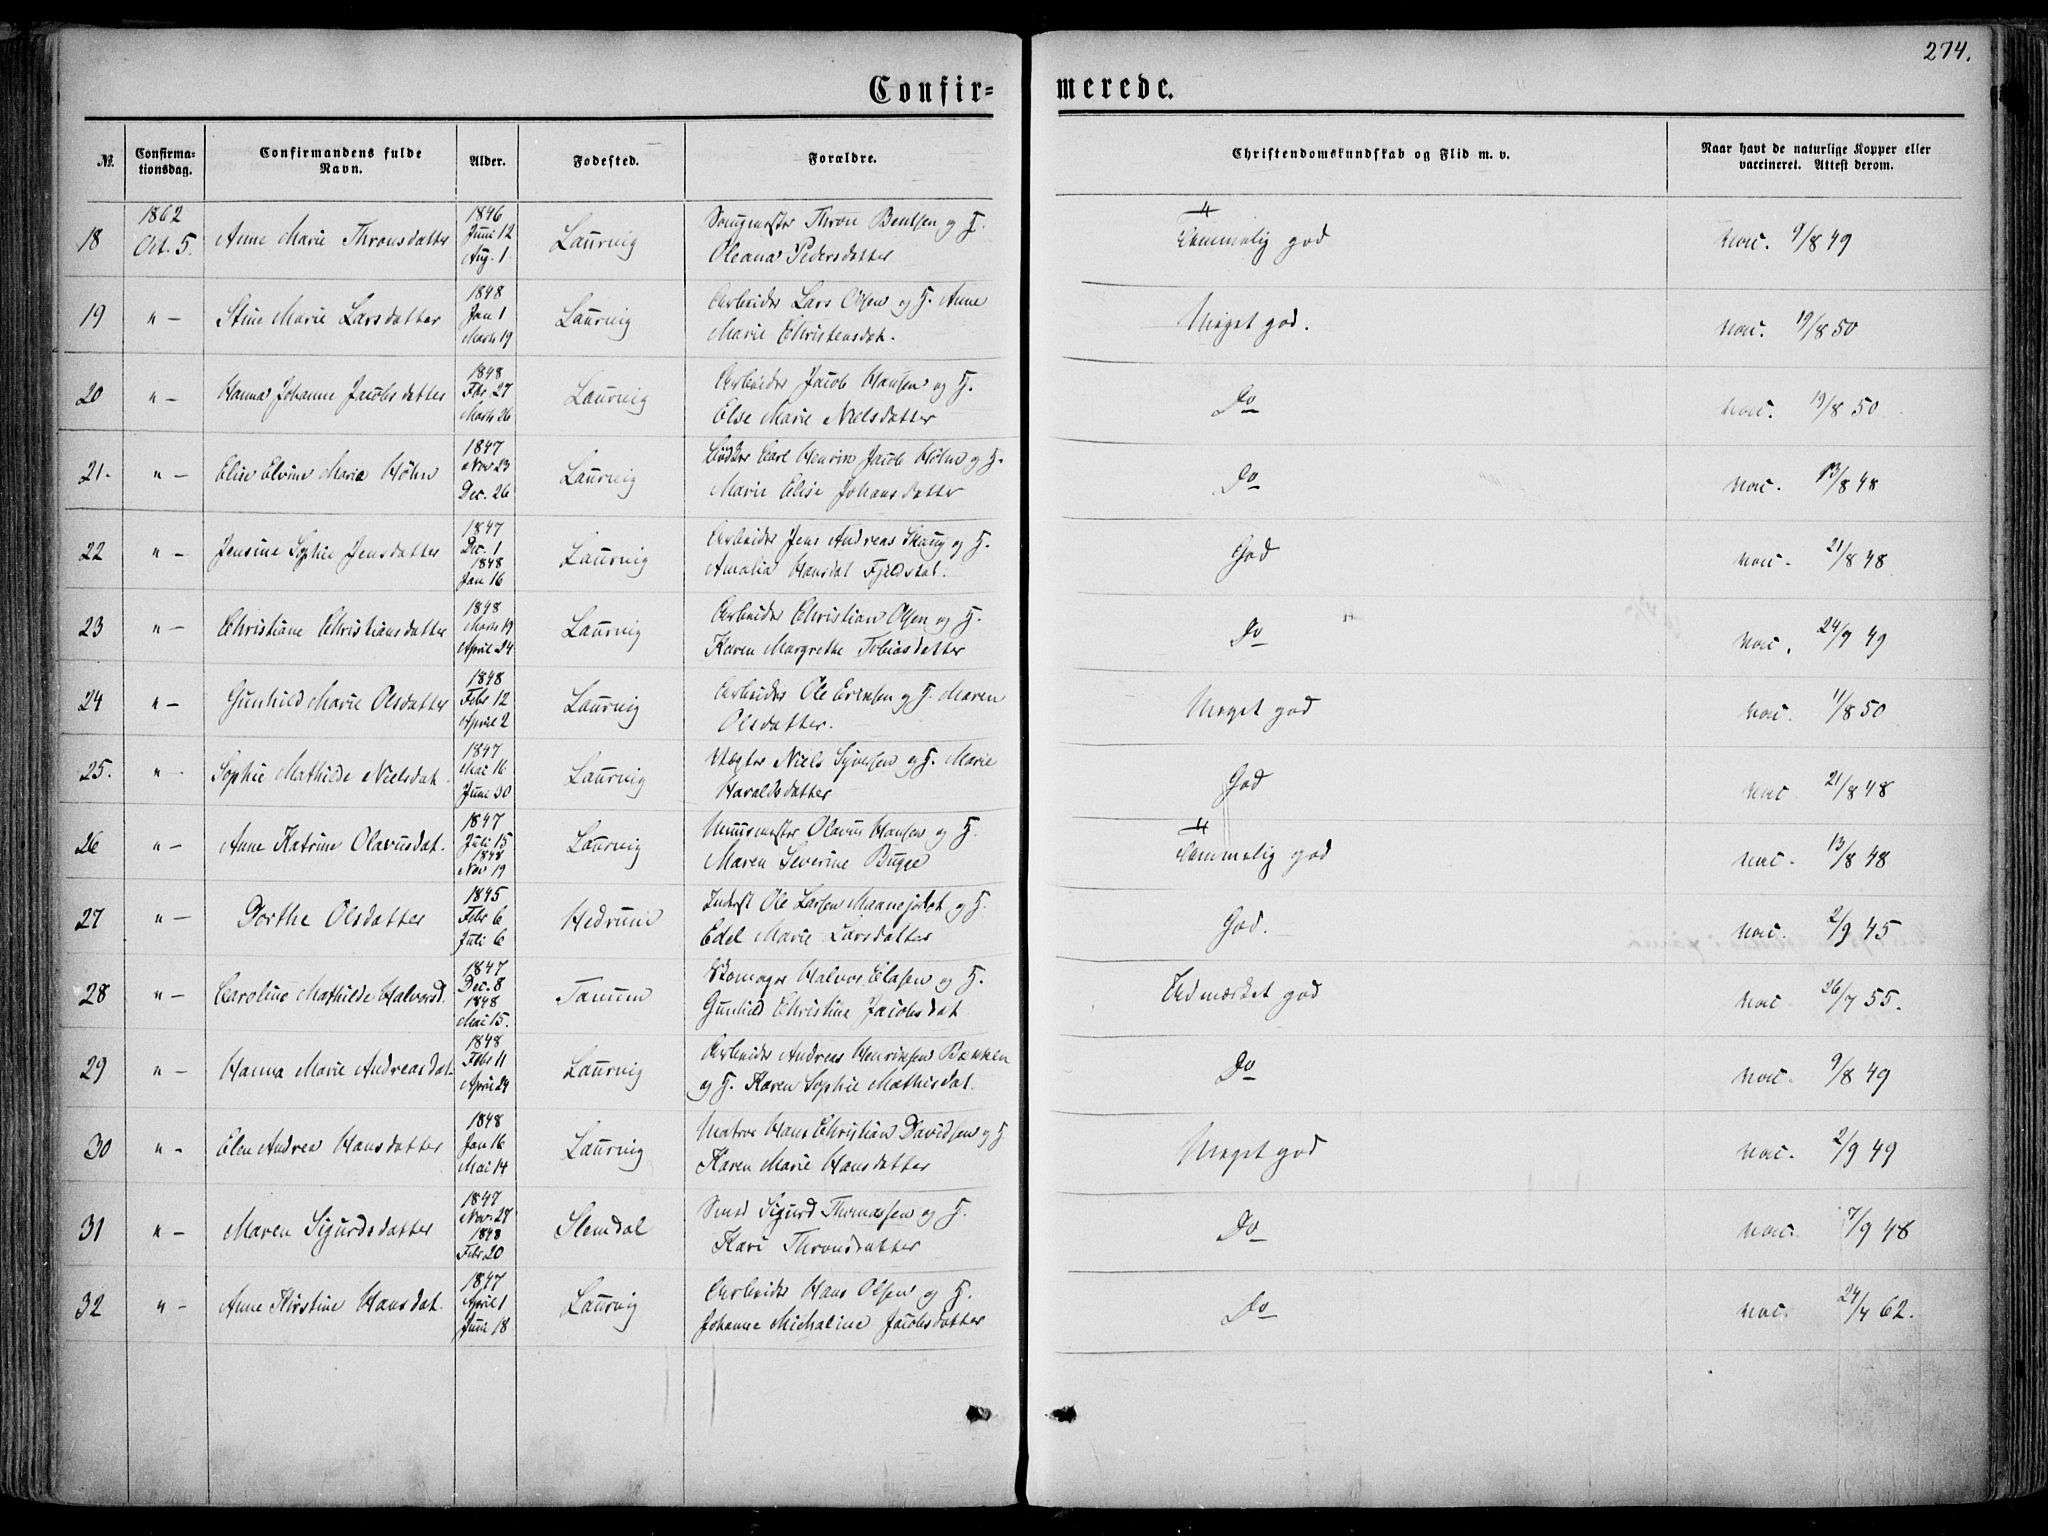 274.
Confir-
merede.
No. Confirma-tionsdag. Confirmandens fulde Navn. Alder. Fodested. Forældre. Christendomskundskab og Flid m. v. Naar havt de naturlige Kopper eller vaccineret. Attest derom.
1862 1846
18 Oct. 5. Anne Marie Thronsdatter Juni 12 Aug. 1 Laurvig Thron Bentsen og H. Tammelig god vac. 9/8 49
Oleana Pedersdatter
1848
19 " – Stine Marie Larsdatter Jan 1 Marts 19 Laurvig Arbeider Lars Olsen og H. Anne Meget god. vac. 19/8 50
Marie Christensdat.
1848
20 " – Hanna Johanne Jacobsdatter Febr 27 Marts 26 Laurvig Arbeider Jacob Hansen og H. Do vac. 19/8 50
Else Marie Nielsdatter
1847
21. " – Elise Elvine Marie Høhn Nov 23 Dec. 26 Laurvig Carl Henrik Jacob Høhn og H. Do vac. 13/8 48
Marie Elise Johansdatter
1847
22 " – Jensine Sophie Jensdatter Dec. 1 1848 Jan 16 Laurvig Arbeider Jens Andreas Skaug og H. God vac. 21/8 48
Amalia Hansdat Fjeldstat.
1848
23 " – Christiane Christiansdatter Marts 19 April 24 Laurvig Arbeider Christian Olsen og H. Do vac. 24/9 49
Karen Margrethe Tobiasdatter
1848
24 " – Gunhild Marie Olsdatter Febr 12 April 2 Laurvig Arbeider Ole Eriksen og H. Maren Meget god vac. 11/8 50
Olsdatter.
1847
25. " – Sophie Mathilde Nielsdat. Mai 16 Juni 30 Laurvig Vægter Niels Syvesen og H. Marie God vac. 21/8 48
Haraldsdatter
1847
26 " – Anne Katrine Olavusdat. Juli 15 1848 Nov 19 Laurvig Muurmester Olavus Hansen og H. Tammelig god vac. 13/8 48
Maren Severine Bugge
1845
27 " – Dorthe Olsdatter Febr 6 Juli 6 Hedrum Inderst Ole Larsen og H. God. vac. 2/9 45
Edel Marie Larsdatter
1847
28 " – Caroline Mathilde Halvorsd. Dec. 8 1848 Mai 15. Tanum Skomager Halvor Elasen og H. Udmærket god vac. 26/7 55.
Gunhild Christine Jacobsdat
1848
29 " – Hanna Marie Andreasdat. Febr 11 April 24 Laurvig Arbeider Andreas Henriksen Bækken Do vac. 9/8 49
og H. Karen Sophie Mathisdat.
1848
30 " – Elen Andrea Hansdatter Jan 16 Mai 14 Laurvig Matros Hans Christian Davidsen og H Meget god vac. 2/9 49
Karen Marie Hansdatter
1847
31 " – Maren Sigurdsdatter Nov. 27 1848 Febr. 20 Slemdal Smed Sigurd Thomassen og H. Do vac. 7/9 48
Kari Thronsdatter
1847
32 " – Anne Kirstine Hansdat. April 1 Juni 18 Laurvig Arbeider Hans Olsen og H. Do vac. 24/7 62.
Johanne Michaline Jacobsdatter